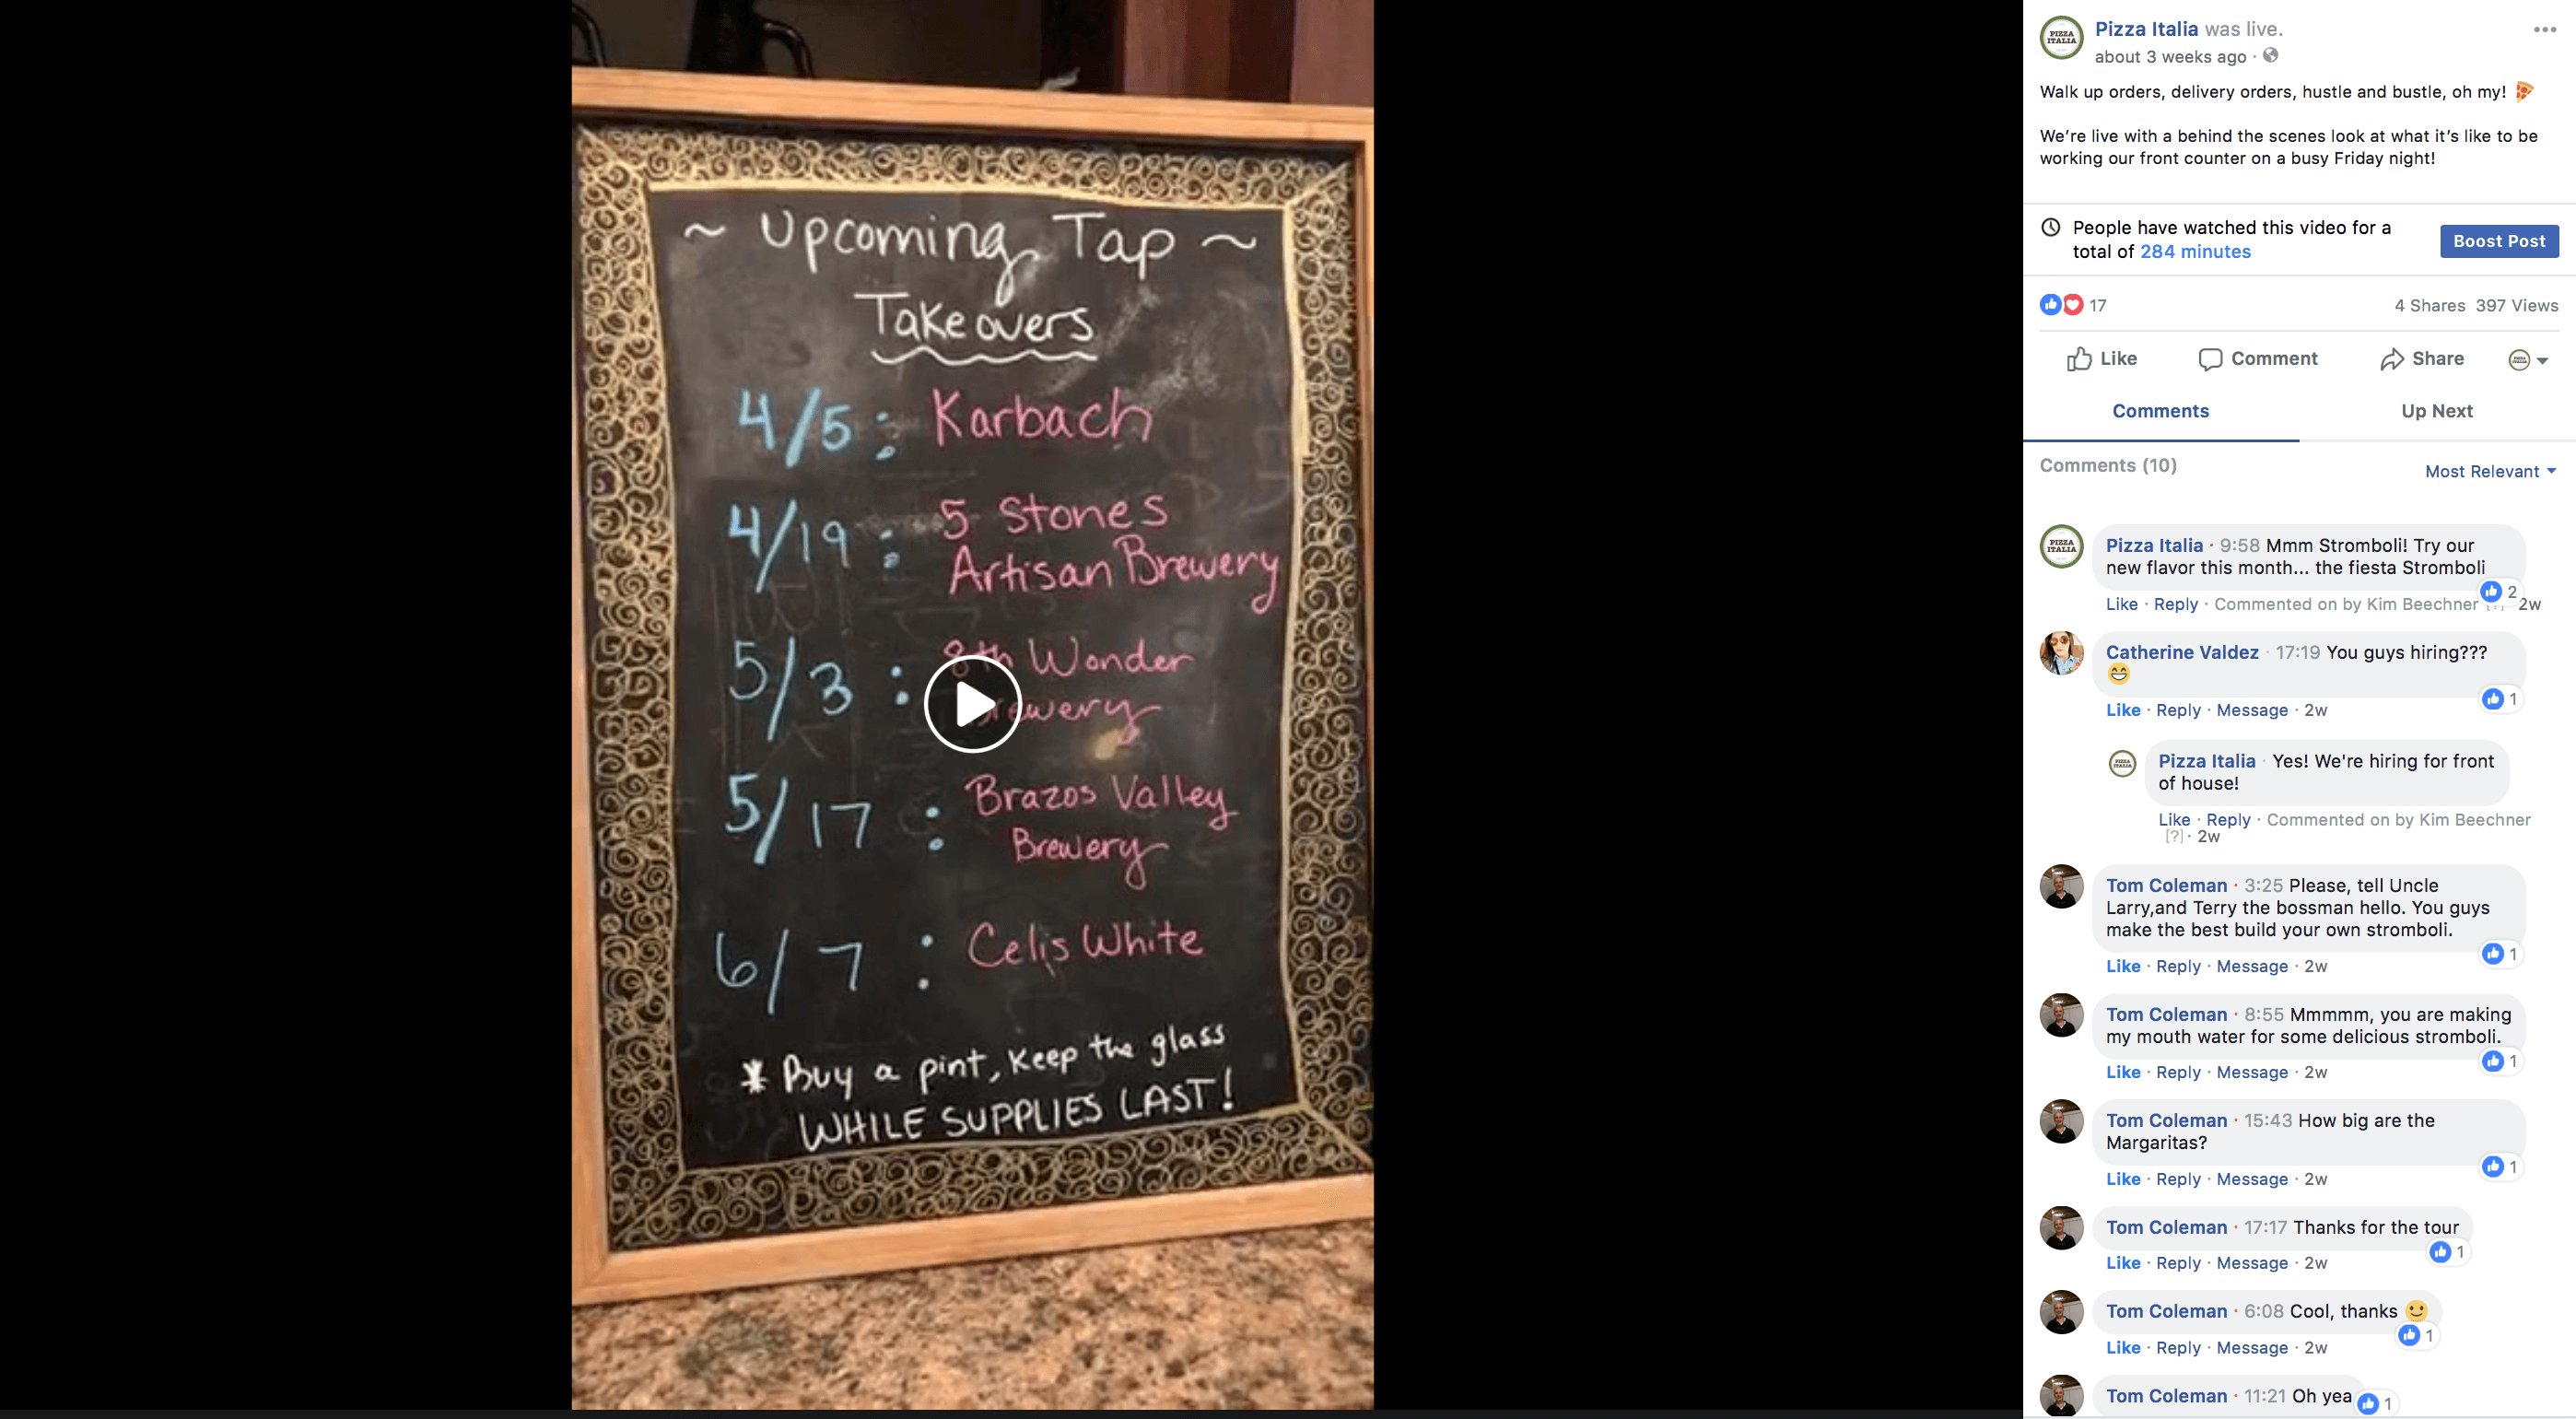 ~ Upcoming Tap ~
Takeovers
4/5 : Karbach
4/19 : 5 Stones
Artisan Brewery
5/3 : 8th Wonder
Brewery
5/17 : Brazos Valley
Brewery
6/7 : Celis White
* Buy a pint, Keep the glass
WHILE SUPPLIES LAST!
PIZZA
ITALIA
Pizza Italia was live.
about 3 weeks ago ·
Walk up orders, delivery orders, hustle and bustle, oh my! 🍕
We’re live with a behind the scenes look at what it’s like to be
working our front counter on a busy Friday night!
People have watched this video for a
total of 284 minutes
Boost Post
17
4 Shares 397 Views
Like Comment Share
Comments Up Next
Comments (10)
Most Relevant
PIZZA
ITALIA
Pizza Italia · 9:58 Mmm Stromboli! Try our
new flavor this month... the fiesta Stromboli
2
Like · Reply · Commented on by Kim Beechner [?] · 2w
Catherine Valdez · 17:19 You guys hiring???
😁
1
Like · Reply · Message · 2w
Pizza Italia · Yes! We're hiring for front
of house!
Like · Reply · Commented on by Kim Beechner
[?] · 2w
Tom Coleman · 3:25 Please, tell Uncle
Larry,and Terry the bossman hello. You guys
make the best build your own stromboli.
1
Like · Reply · Message · 2w
Tom Coleman · 8:55 Mmmmm, you are making
my mouth water for some delicious stromboli.
1
Like · Reply · Message · 2w
Tom Coleman · 15:43 How big are the
Margaritas?
1
Like · Reply · Message · 2w
Tom Coleman · 17:17 Thanks for the tour
1
Like · Reply · Message · 2w
Tom Coleman · 6:08 Cool, thanks 🙂
1
Like · Reply · Message · 2w
Tom Coleman · 11:21 Oh yea
1